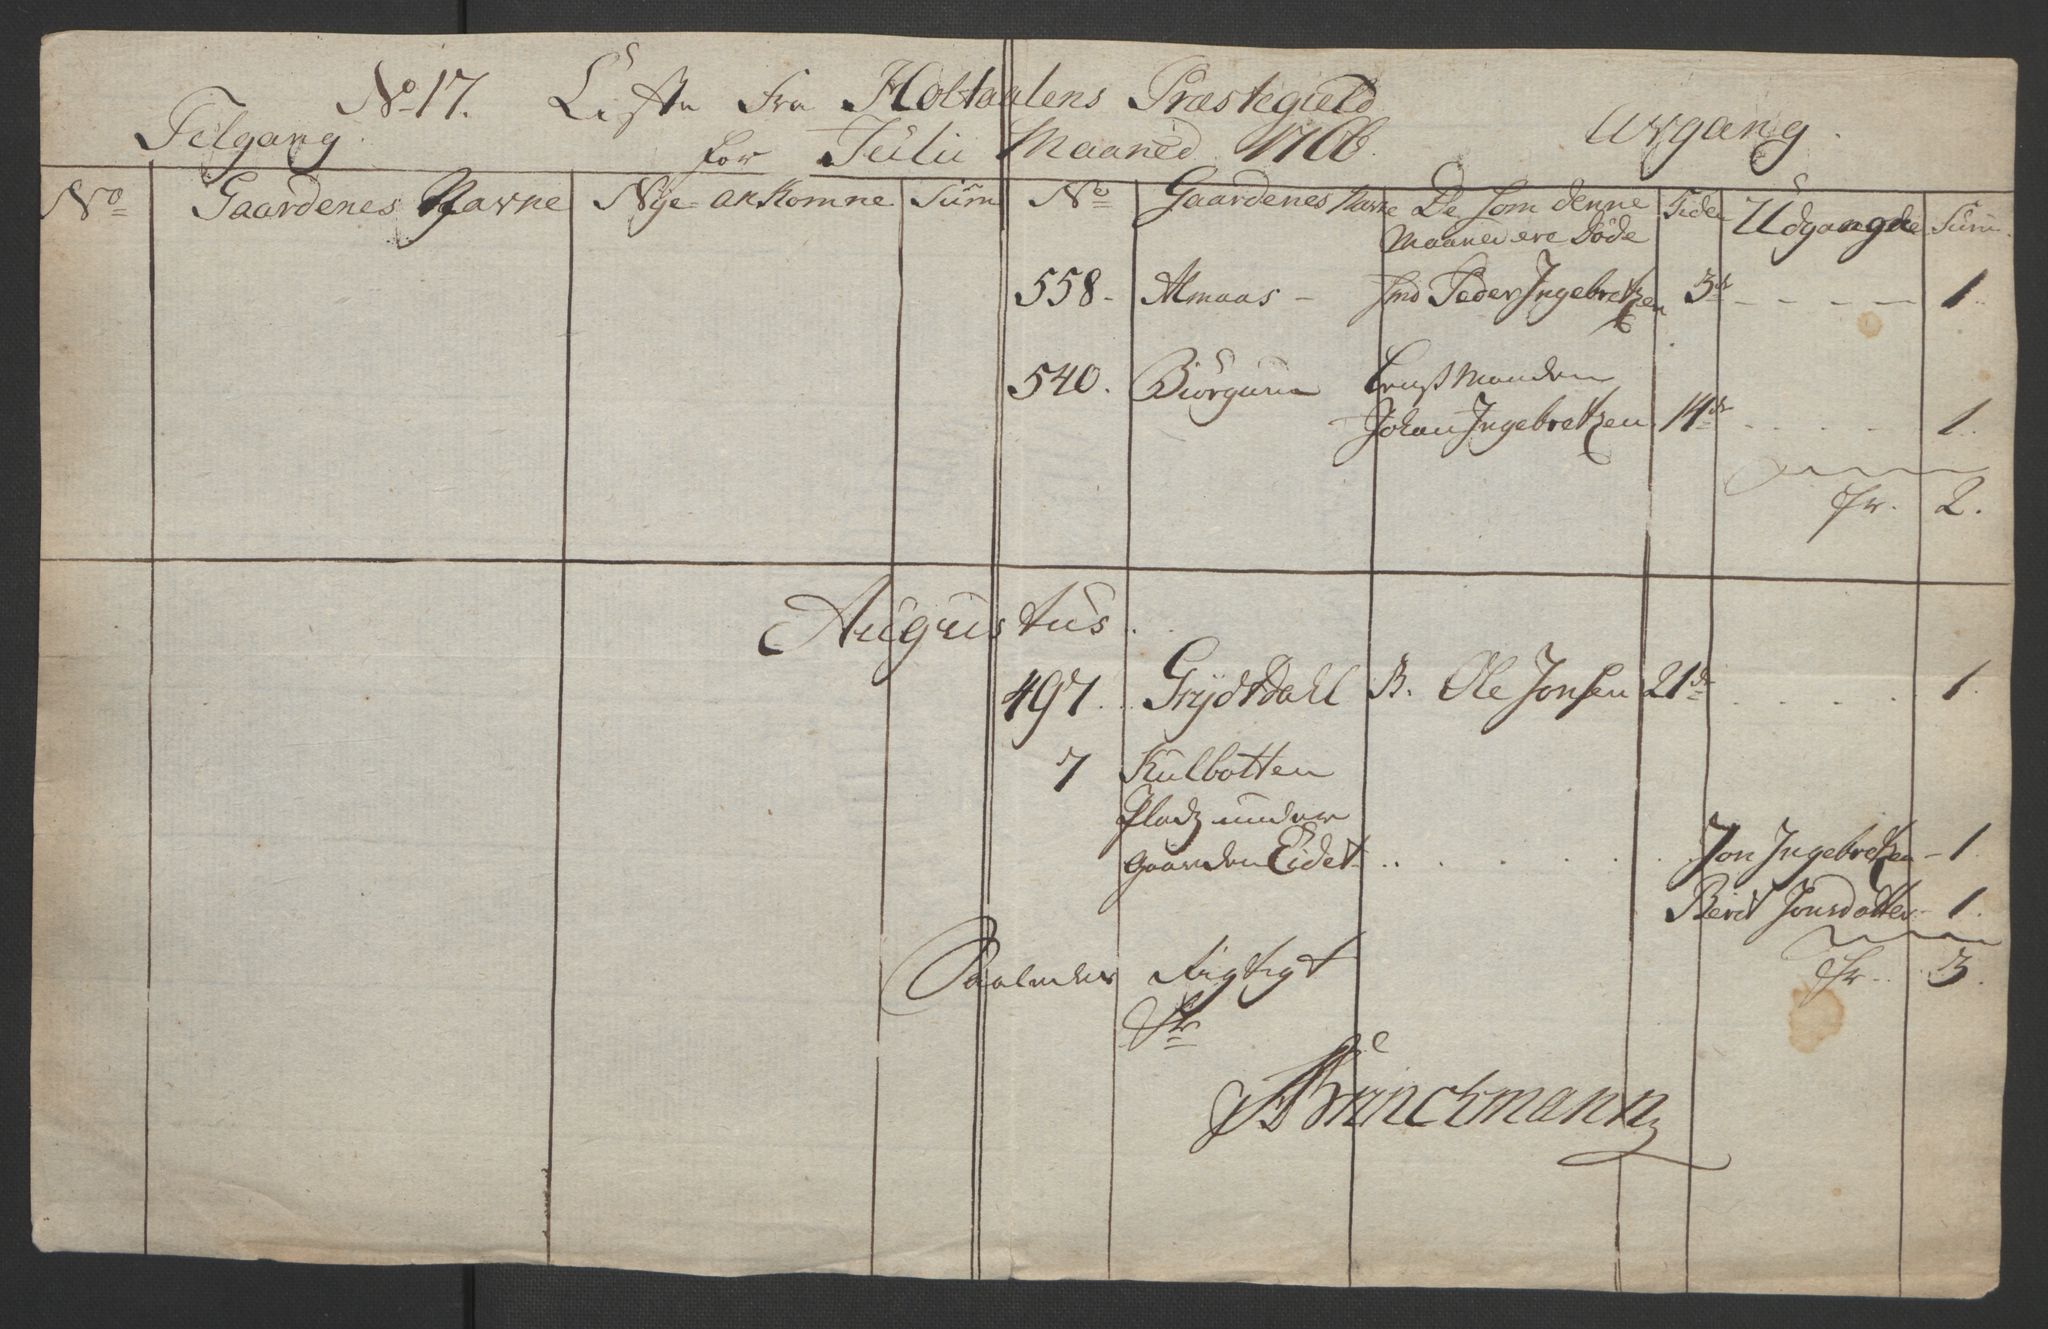 No 17. Liste fra Holtaalens Præstegield
Telgang Avgang.
for Julii Maaned 1766.
No Gaardenes Navne Nye-ankomne Sum No Gaardenes Navne De som denne Maaned ere Døde Tiden Udgangne Sum
558 - Almaas - Peder Ingebretzen 3de - - - - 1.
540. Biörgum Enkemanden
Johan Ingebretzen 14de . . . . 1.
Sr. 2.
Augustus..
497... Grÿdtdahl B. Ole Jonsen 21de . . . . . 1.
7 Kulbotten
Pladz under
gaarden Eidet . . . . . . . Jon Ingebretzen - 1.
Berit Jonsdotter - 1.
Sr.. 3.
Saaledes rigtigt
Brinckmann